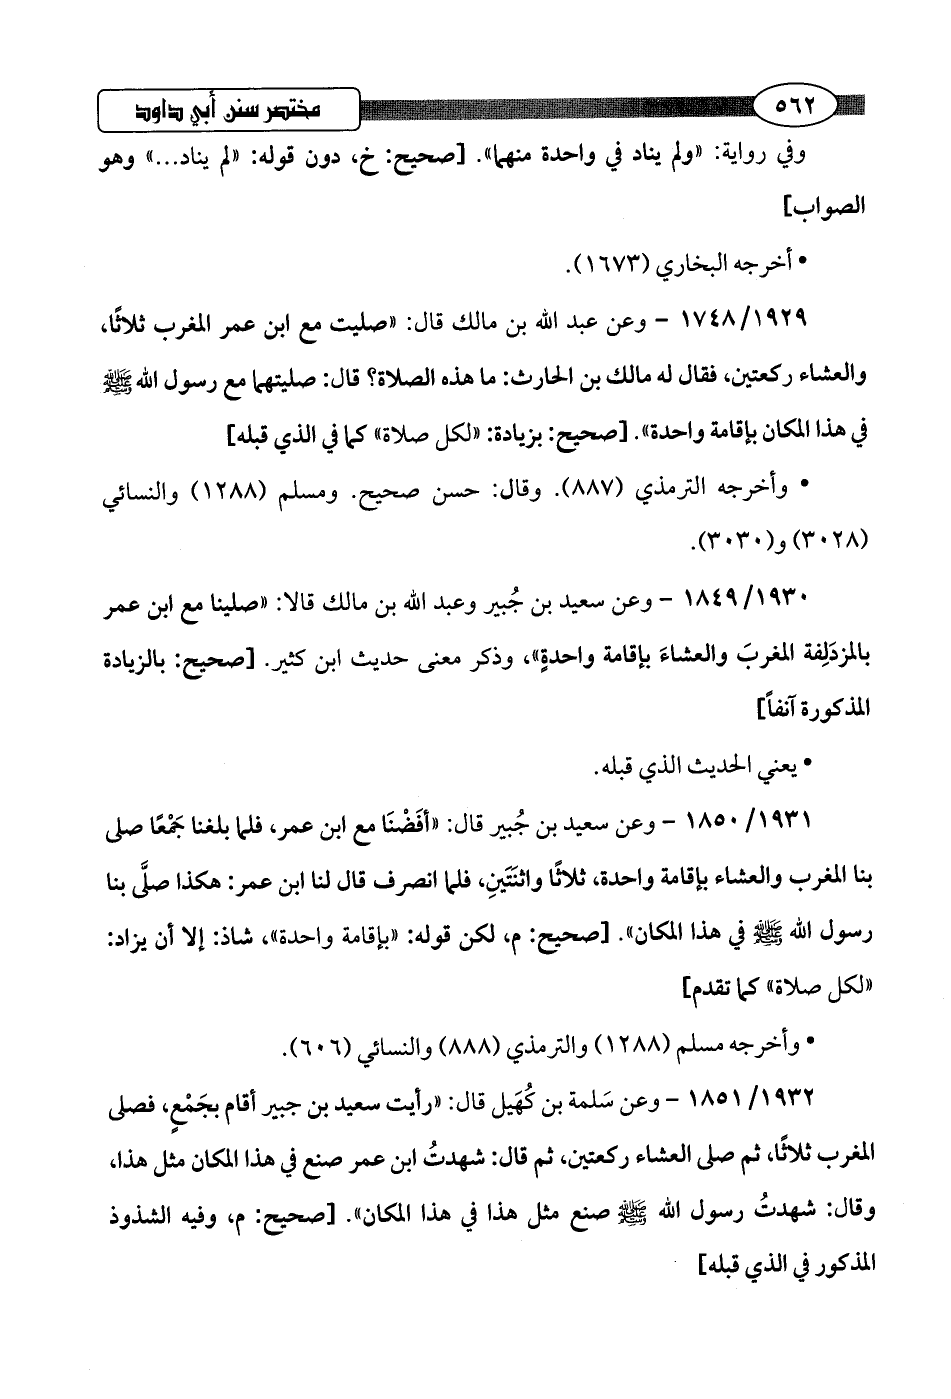 ٥٦٢
مختصر سنن أبي داود
وفي رواية: «ولم يناد في واحدة منهما». [صحيح: خ، دون قوله: «لم يناد...» وهو
الصواب]
• أخرجه البخاري (١٦٧٣).
١٧٤٨/١٩٢٩ - وعن عبد الله بن مالك قال: «صليت مع ابن عمر المغرب ثلاثًا،
والعشاء ركعتين، فقال له مالك بن الحارث: ما هذه الصلاة؟ قال: صليتهما مع رسول الله ﷺ
في هذا المكان بإقامة واحدة». [صحيح: بزيادة: «لكل صلاة» كما في الذي قبله]
• وأخرجه الترمذي (٨٨٧). وقال: حسن صحيح. ومسلم (١٢٨٨) والنسائي
(٣٠٢٨) و(٣٠٣٠).
١٨٤٩/١٩٣٠ - وعن سعيد بن جُبير وعبد الله بن مالك قالا: «صلينا مع ابن عمر
بالمزدَلِفة المغربَ والعشاءَ بإقامة واحدةٍ»، وذكر معنى حديث ابن كثير. [صحيح: بالزيادة
المذكورة آنفاً]
• يعني الحديث الذي قبله.
١٨٥٠/١٩٣١ - وعن سعيد بن جُبير قال: «أفَضْنَا مع ابن عمر، فلما بلغنا جَمْعًا صلى
بنا المغرب والعشاء بإقامة واحدة، ثلاثًا واثنَتَينِ، فلما انصرف قال لنا ابن عمر: هكذا صلَّى بنا
رسول الله ﷺ في هذا المكان». [صحيح: م، لكن قوله: «بإقامة واحدة»، شاذ: إلا أن يزاد:
«لكل صلاة» كما تقدم]
• وأخرجه مسلم (١٢٨٨) والترمذي (٨٨٨) والنسائي (٦٠٦).
١٨٥١/١٩٣٢ - وعن سَلمة بن كُهَيل قال: «رأيت سعيد بن جبير أقام بجَمْعٍ، فصلى
المغرب ثلاثًا، ثم صلى العشاء ركعتين، ثم قال: شهدتُ ابن عمر صنع في هذا المكان مثل هذا،
وقال: شهدتُ رسول الله ﷺ صنع مثل هذا في هذا المكان». [صحيح: م، وفيه الشذوذ
المذكور في الذي قبله]